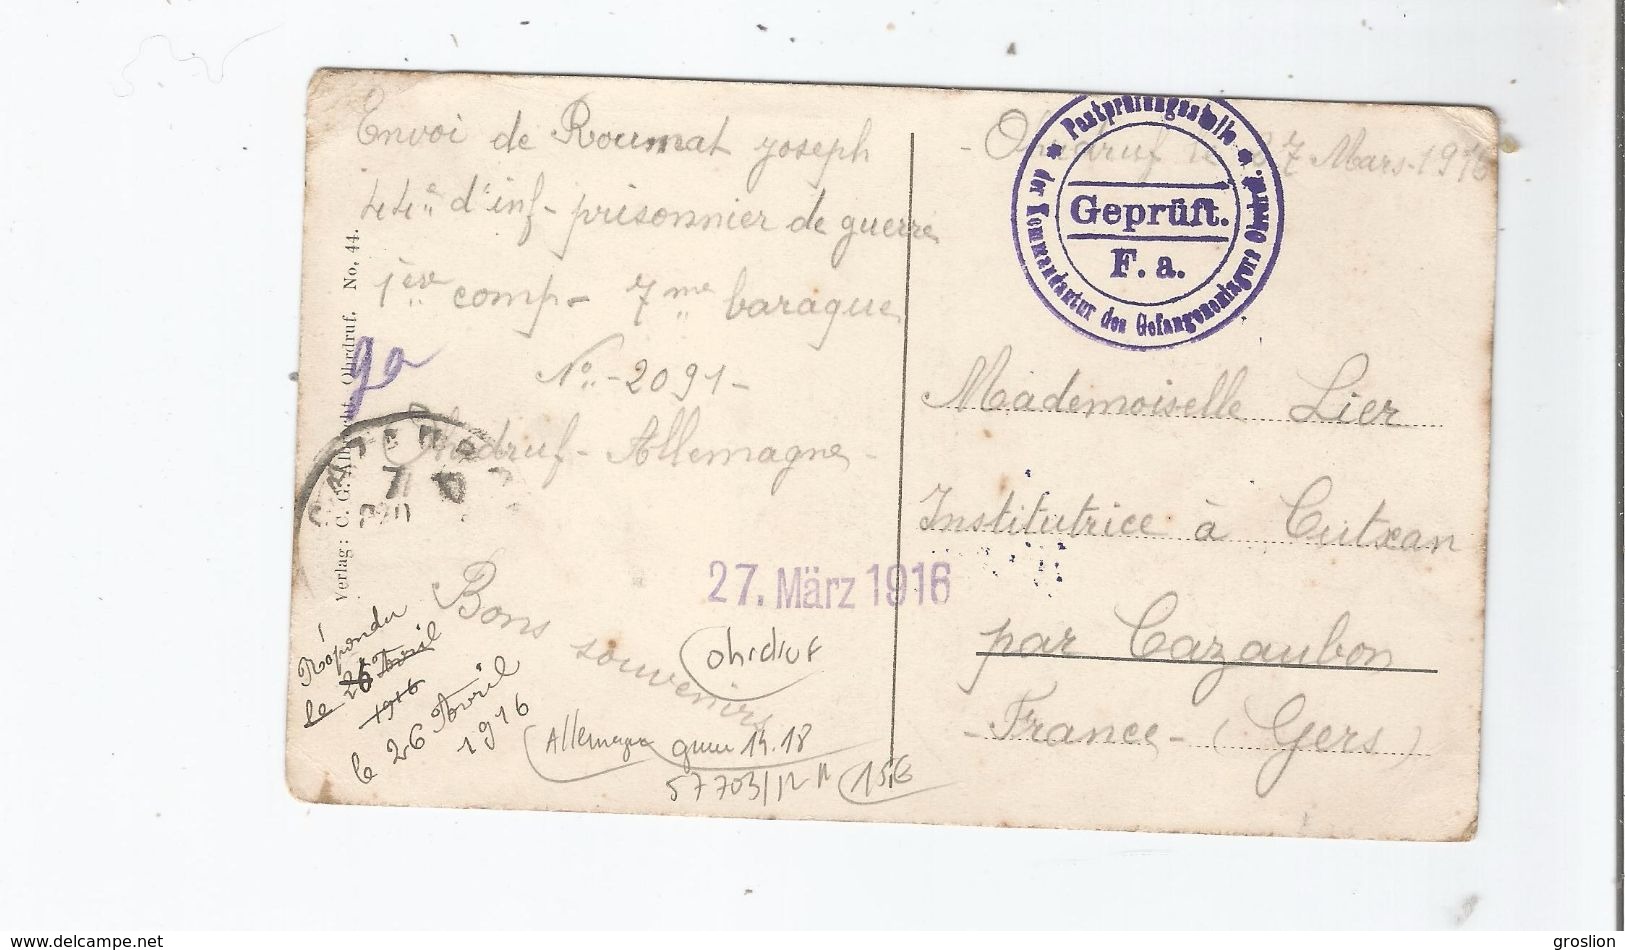 Envoi de Roumat Joseph
44e d'inf - prisonnier de guerre
1ère comp - 7me baraque
No - 2091 -
Ohrdruf - Allemagne -
Bons souvenirs
Verlag: C. G. Albrecht, Ohrdruf. No. 44.
ga
27. März 1916
Répondu
le 26 Avril
1916
le 26 Avril
1916
Ohrdruf
Allemagne guerre 14.18
57703/12
- Ohrdruf le 27 Mars - 1916
* Postprüfungsstelle *
der Kommandantur des Gefangenenlagers Ohrdruf.
Geprüft.
F. a.
Mademoiselle Lier
Institutrice à Cutxan
par Cazaubon
- France - (Gers)
www.delcampe.net
groslion